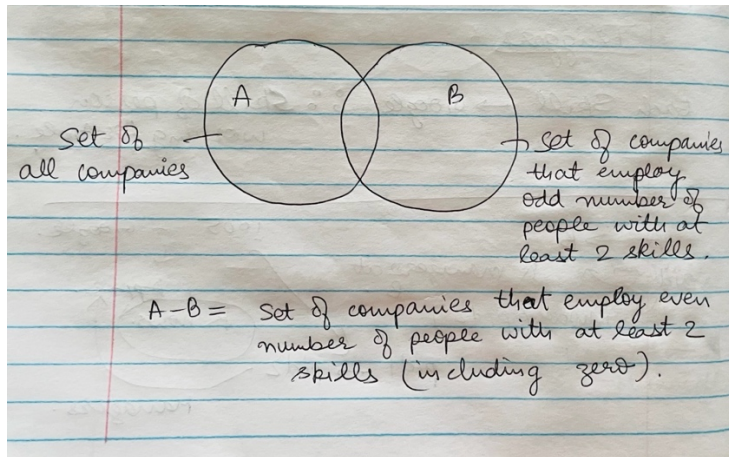 A
B
Set of
all companies
set of companies
that employ
odd number of
people with at
least 2 skills.
A-B = Set of companies that employ even
number of people with at least 2
skills (including zero).